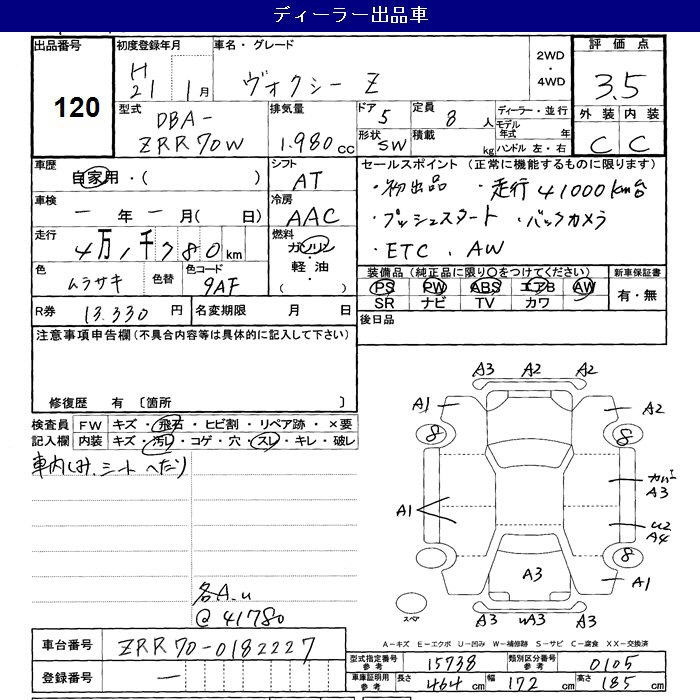 ディーラー出品車
出品番号
120
初度登録年月
H
21 1月
車名・グレード
ヴォクシー Z
2WD
・
4WD
評価点
3.5
外装 内装
C C
型式
DBA-
ZRR70W
排気量
1.980 cc
ドア
5
形状
SW
定員
8 人
積載
kg
ディーラー・並行
モデル
年式 年
ハンドル 左・右
車歴
自家用・( )
シフト
AT
セールスポイント (正常に機能するものに限ります)
・初出品 ・走行41000km台
・プッシュスタート ・バックカメラ
・ETC . AW
車検
一 年 一 月( 日)
冷房
AAC
走行
4万,1千780 km
燃料
ガソリン
軽油
( )
色
ムラサキ
色替
色コード
9AF
装備品 (純正品に限り○をつけてください)
PS PW ABS エアB AW
SR ナビ TV カワ
新車保証書
有・無
R券
13.330 円
名変期限 月 日
後日品
注意事項申告欄 (不具合内容等は具体的に記入して下さい)
修復歴 有 〔箇所 〕
検査員
記入欄
FW キズ・飛石・ヒビ割・リペア跡・×要
内装 キズ・汚レ・コゲ・穴・スレ・キレ・破レ
車内しみ.シートへたり
各A_u
@41780
A3 A2 A2
A1 A2
8 8
A1
A3
A4
8
A3
A1
スペア
A3 A3
A-キズ E-エクボ U-凹み W-補修跡 S-サビ C-腐食 XX-交換済
車台番号
ZRR70-0182227
登録番号
一
型式指定番号
参考
15738
類別区分番号
参考
0105
車庫証明用
参考
長さ 464 cm 幅 172 cm 高さ 185 cm